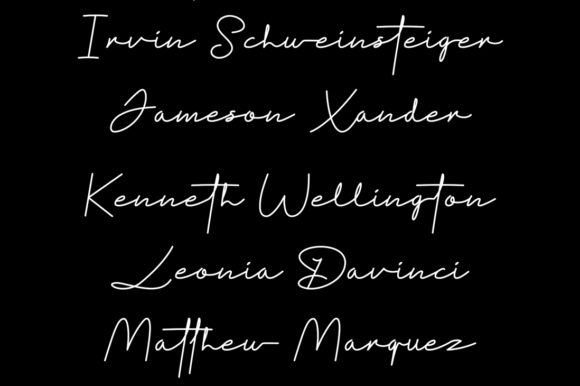 Irvin Schweinsteiger
Jameson Xander
Kenneth Wellington
Leonia Davinci
Matthew Marquez